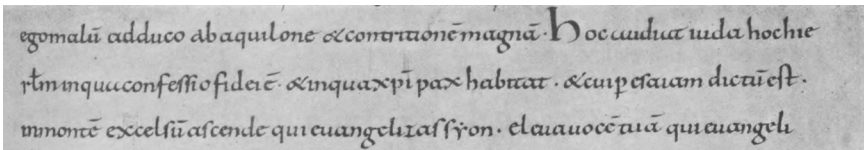 egomalū adduco abaquilone &contritionēmagnā· Hocaudiat iuda hochie
rłm inqua confessio fidei ē· &inqua xp̄i pax habitat· &cui ꝑ esaiam dictū est·
inmontē excelsū ascende qui euangelizas syon· eleuauocē tuā qui euangeli